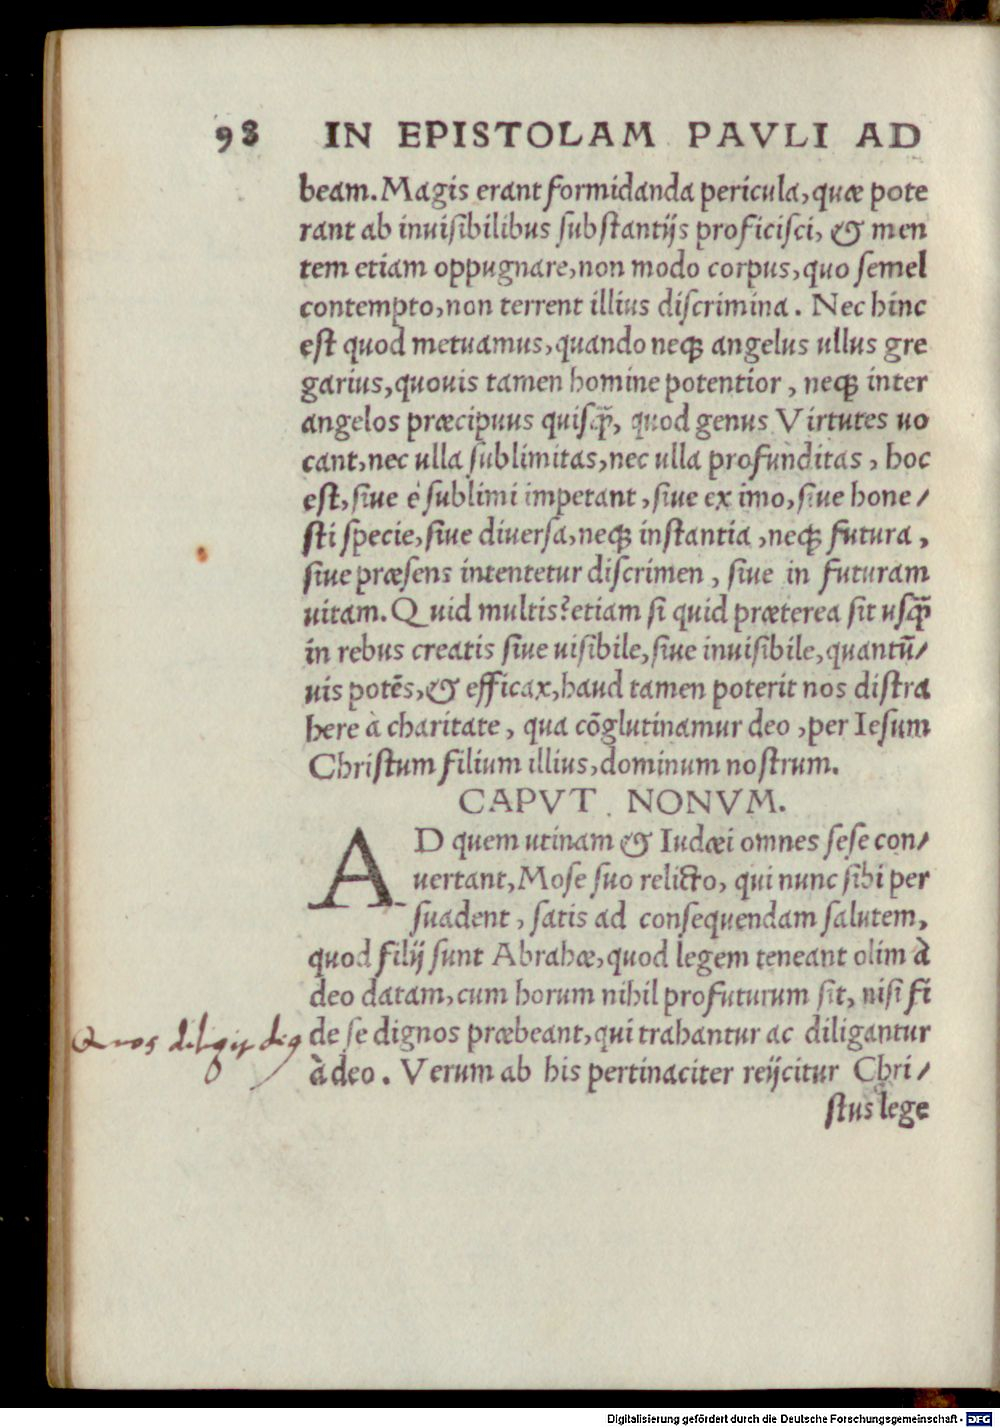 98 IN EPISTOLAM PAVLI AD
beam. Magis erant formidanda pericula, quæ pote
rant ab inuisibilibus substantijs proficisci, & men
tem etiam oppugnare, non modo corpus, quo semel
contempto, non terrent illius discrimina. Nec hinc
est quod metuamus, quando neqꝫ angelus ullus gre
garius, quouis tamen homine potentior, neqꝫ inter
angelos præcipuus quisq̃, quod genus Virtutes uo
cant, nec ulla sublimitas, nec ulla profunditas, hoc
est, siue è sublimi impetant, siue ex imo, siue hone/
sti specie, siue diuersa, neqꝫ instantia, neqꝫ futura,
siue præsens intentetur discrimen, siue in futuram
uitam. Quid multis? etiam si quid præterea sit usq̃
in rebus creatis siue uisibile, siue inuisibile, quantũ/
uis potẽs, & efficax, haud tamen poterit nos distra
here à charitate, qua cõglutinamur deo, per Iesum
Christum filium illius, dominum nostrum.
CAPVT NONVM.
AD quem utinam & Iudæi omnes sese con/
uertant, Mose suo relicto, qui nunc sibi per
suadent, satis ad consequendam salutem,
quod filij sunt Abrahæ, quod legem teneant olim à
deo datam, cum horum nihil profuturum sit, nisi fi
Quos diligit de9 de se dignos præbeant, qui trahantur ac diligantur
à deo. Verum ab his pertinaciter reijcitur Chri/
stus lege
Digitalisierung gefördert durch die Deutsche Forschungsgemeinschaft - DFG